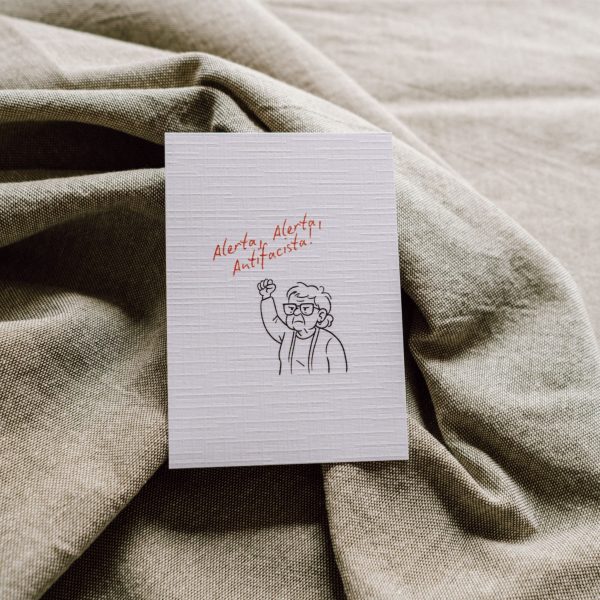 Alerta, Alerta,
Antifacista!